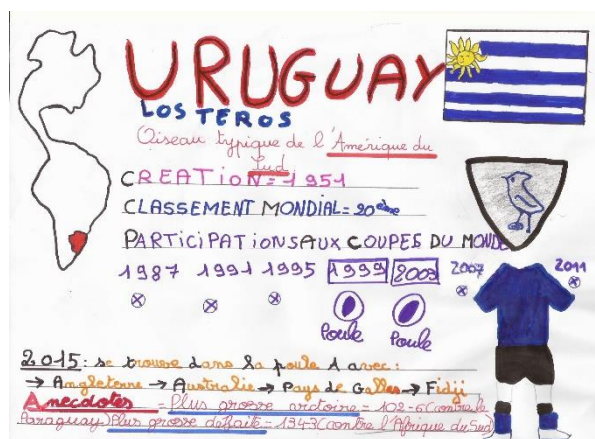 URUGUAY
LOS TEROS
Oiseau typique de l'Amérique du
Sud
CREATION = 1951
CLASSEMENT MONDIAL = 20ème
PARTICIPATIONS AUX COUPES DU MONDE
1987 1991 1995 1999 2003 2007 2011
Poule Poule
2015: se trouve dans la poule A avec:
→ Angleterre → Australie → Pays de Galles → Fidji
Anecdotes = Plus grosse victoire = 102-6 (contre le
Paraguay) Plus grosse défaite = 134-3 (contre l'Afrique du Sud)